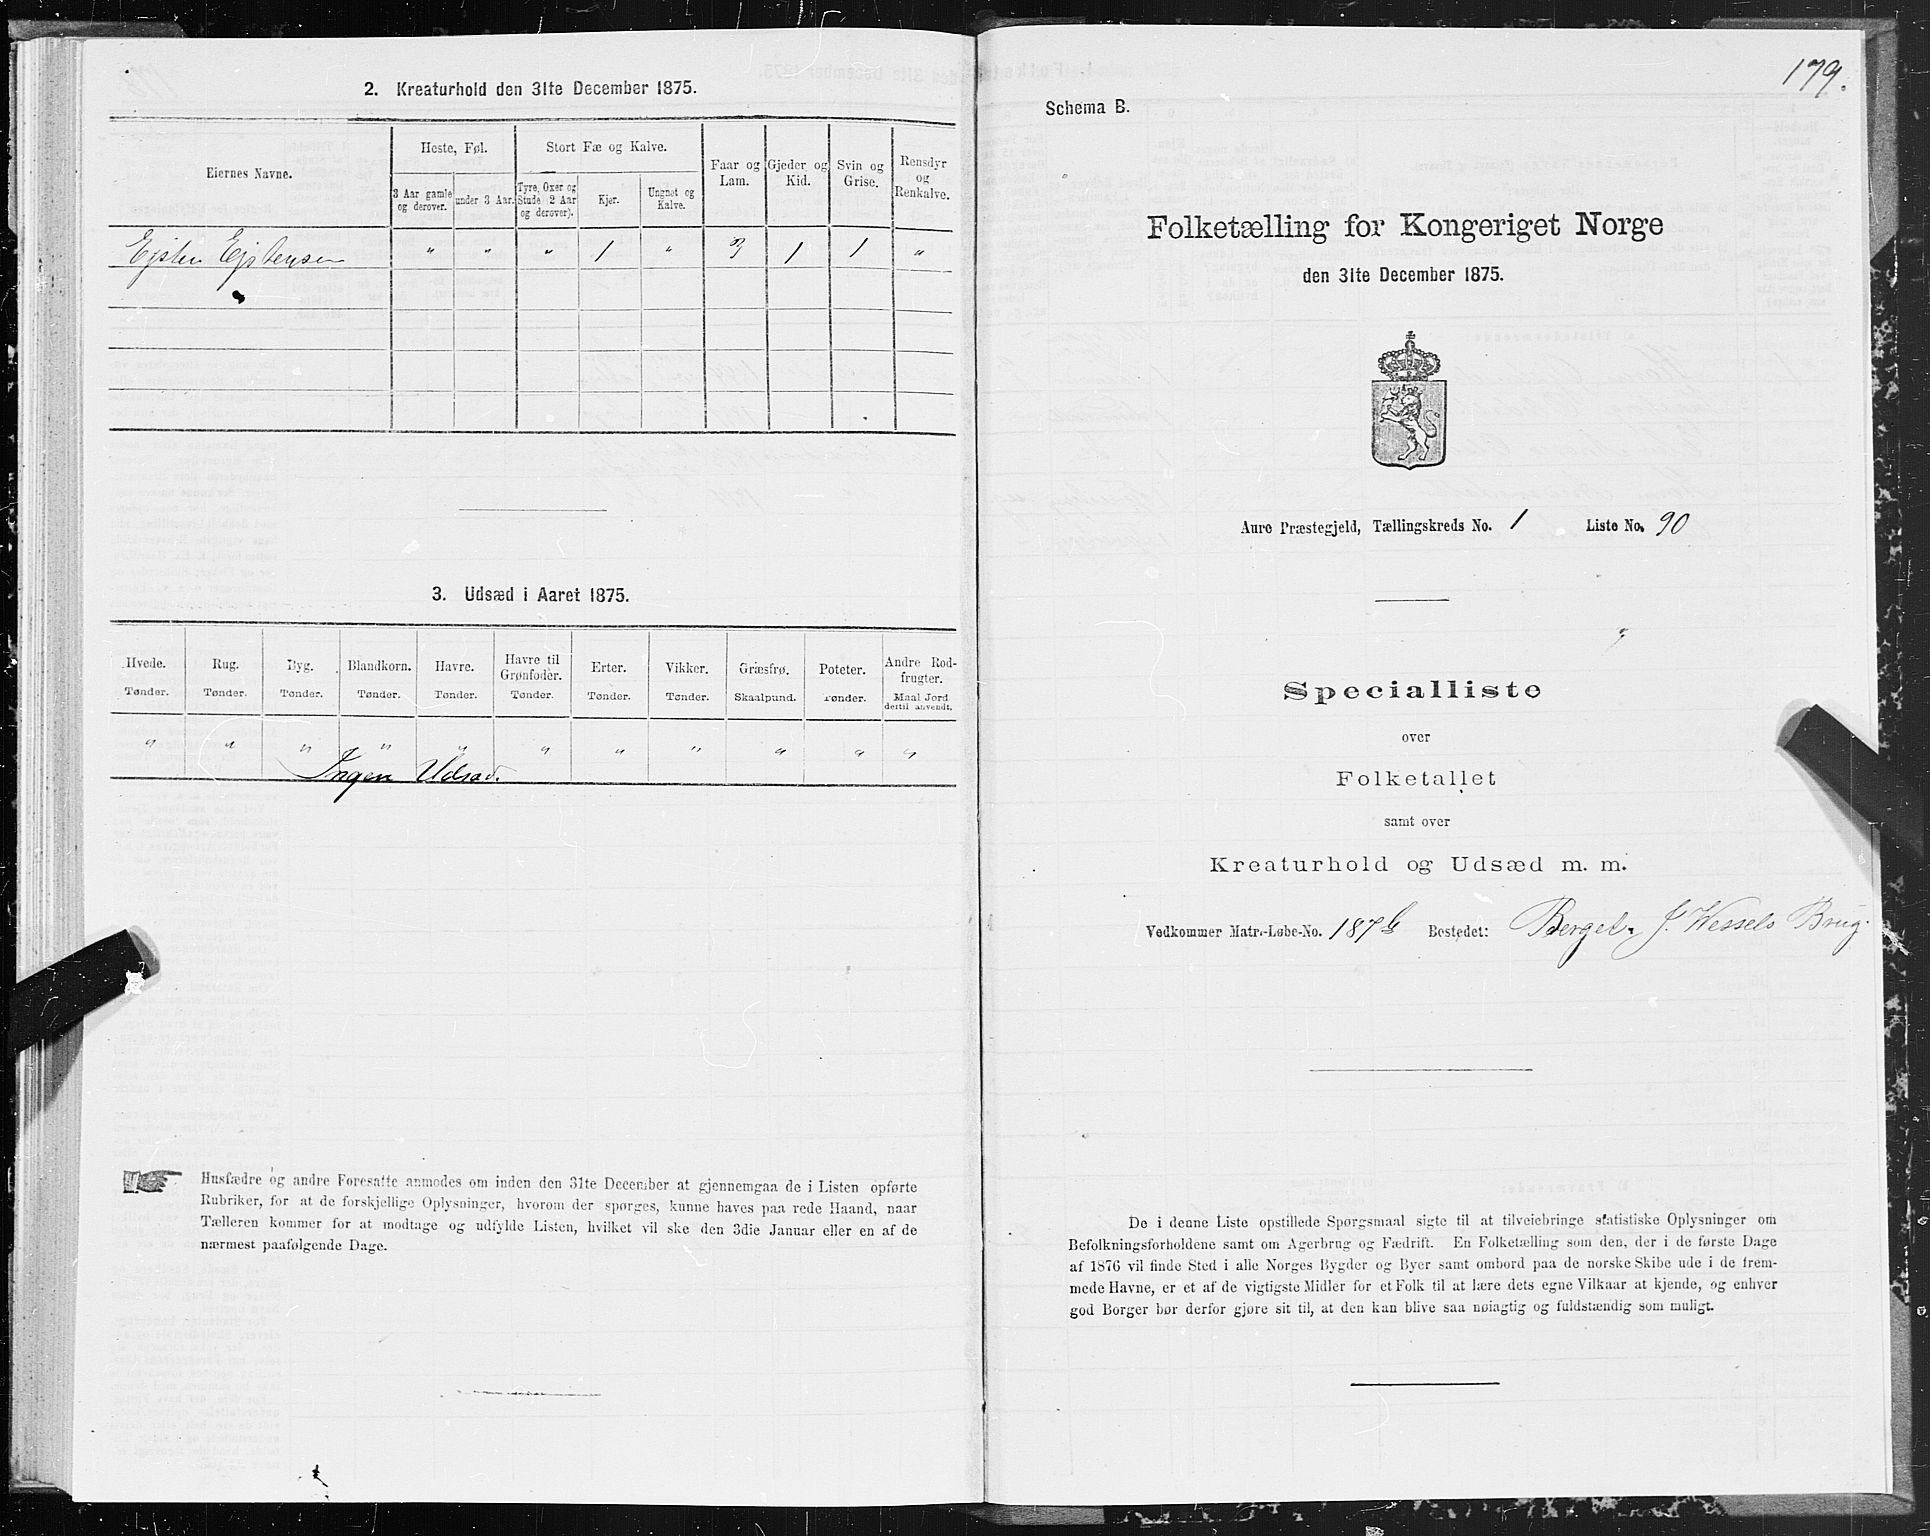 2. Kreaturhold den 31te December 1875.
Eiernes Navne.
Heste, Føl.
Stort Fæ og Kalve.
Faar og Lam.
Gjeder og Kid.
Svin og Grise.
Rensdyr og Renkalve.
3 Aar gamle og derover.
under 3 Aar.
Tyre, Oxer og Stude (2 Aar og derover).
Kjer.
Ungnøt og Kalve.
Ejsten Ejstensen " " " 1 " 3 1 1 "
3. Udsæd i Aaret 1875.
Hvede. Rug. Byg. Blandkorn. Havre. Havre til Grønfoder. Erter. Vikker. Græsfrø. Poteter. Andre Rodfrugter.
Tønder. Tønder. Tønder. Tønder. Tønder. Tønder. Tønder. Tønder. Skaalpund. Tønder. Maal Jord dertil anvendt.
" " " " " " " " " " "
Ingen Udsæd.
Husfædre og andre Foresatte anmodes om inden den 31te December at gjennemgaa de i Listen opførte
Rubriker, for at de forskjellige Oplysninger, hvorom der spørges, kunne haves paa rede Haand, naar
Tælleren kommer for at modtage og udfylde Listen, hvilket vil ske den 3die Januar eller en af de
nærmest paafølgende Dage.
179.
Schema B.
Folketælling for Kongeriget Norge
den 31te December 1875.
Aure Præstegjeld, Tællingskreds No. 1 Liste No. 90
Specialliste
over
Folketallet
samt over
Kreaturhold og Udsæd m. m.
Vedkommer Matr.-Løbe-No. 187b Bostedet: Berget, J. Wessels Brug.
De i denne Liste opstillede Spørgsmaal sigte til at tilveiebringe statistiske Oplysninger om
Befolkningsforholdene samt om Agerbrug og Fædrift. En Folketælling som den, der i de første Dage
af 1876 vil finde Sted i alle Norges Bygder og Byer samt ombord paa de norske Skibe ude i de frem-
mede Havne, er et af de vigtigste Midler for et Folk til at lære dets egne Vilkaar at kjende, og enhver
god Borger bør derfor gjøre sit til, at den kan blive saa nøiagtig og fuldstændig som muligt.